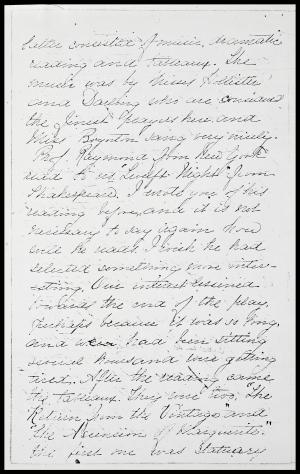 latter consisted of music, dramatic
reading and tableaux. The
music was by Misses Hollister
and Darling who are considered
the finest players here, and
Miss Boynton sang very nicely.
Prof. Raymond from New York
read to us "Twelfth Night" from
Shakespeare. I wrote you of his
reading before, and it is not
necessary to say again how
well he reads. I wish he had
selected something more inter-
esting. Our interest
towards the end of the play,
perhaps because it was so long,
and we had been sitting
several hours and were getting
tired. After the reading came
the tableaux. They were two, "The
Return from the Vintage" and
"the Ascension of Marguerite."
The first one was statuary